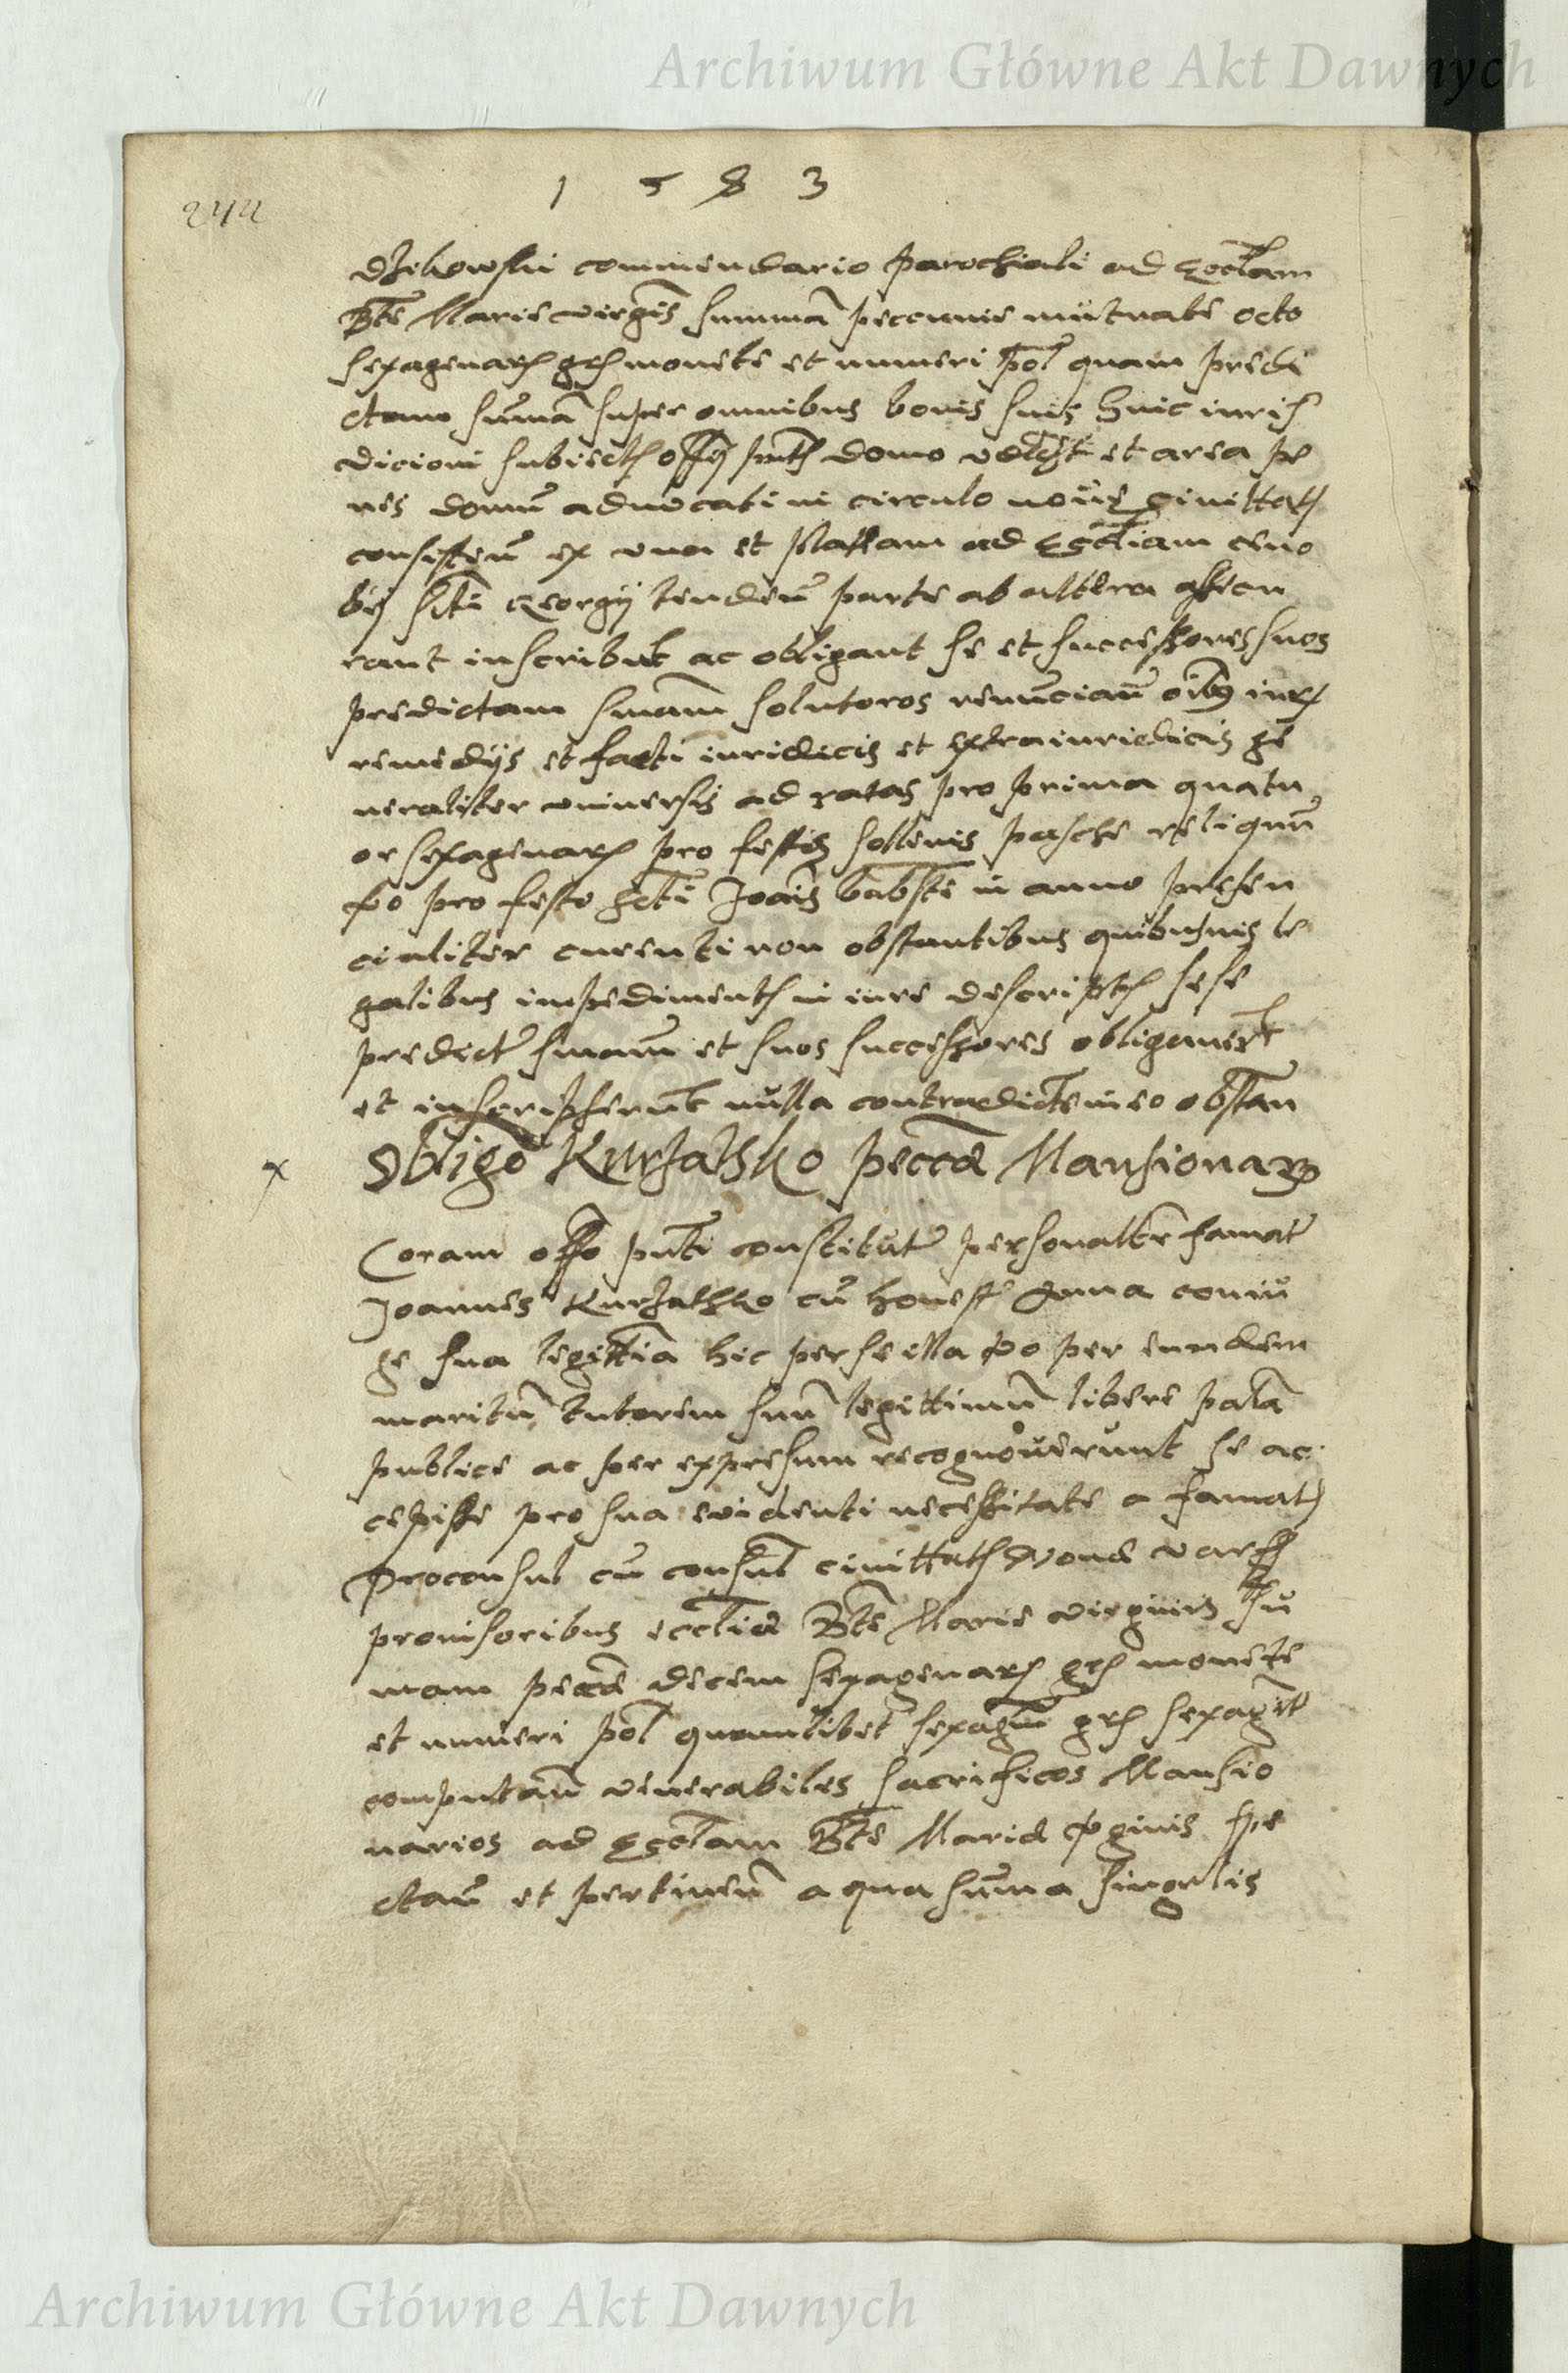 Archiwum Główne Akt Dawnych
1583
244
commendario parochiali ad Ecctam
Bte Marie virgis summa peccunie mutuate octo
sexagenar gr monete et numeri pol quam predi
ctam suma super omnibus bonis suis huic iuris
dicioni subiect offy pnt domo et area pe
nes domu advocati in circulo noue Ciuittat
consisten ex una et plateam ad Ecctiam ceno
bij scti Georgij tenden parte ab altera assecu
rant inscribut ac obligant se et successores suos
predictam smam soluturos renuncian oibg iur
remedijs et facti iuridicis et extraiuridicis ge
neraliter uniuersis ad ratas pro prima quatu
or sexagenar pro festis sollenis pasche reliquu
vo pro festo scti Joais babste in anno presen
cialiter curenti non obstantibus quibusuis le
galibus impediment in iure descript sese
predict smam et suos successores obligauert
et inscripserunt nulla contradicte in eo obstan
Obligo Kurzatsko pecce Mansionar
x
Coram offo pnti constitut personalter famat
Joannes Kurzathko cu honest Anna coniu
ge sua legittia hic per se illa vo per eundem
maritu tutorem suu legittimu libere pala
publice ac per expresum recognouerunt se ac
cepisse pro sua euidenti necessitate a famat
Proconsul cu consul ciuittat Noue Vars
prouisoribus ecctie Bte Marie virginis su
mam pecce decem sexagenar gr monete
et numeri pol quamlibet sexagin gr sexagit
computan venerabiles sacrificos Mansio
narios ad Ecctam Bte Marie vginis spe
ctan et pertinen a qua suma singulis
Archiwum Główne Akt Dawnych